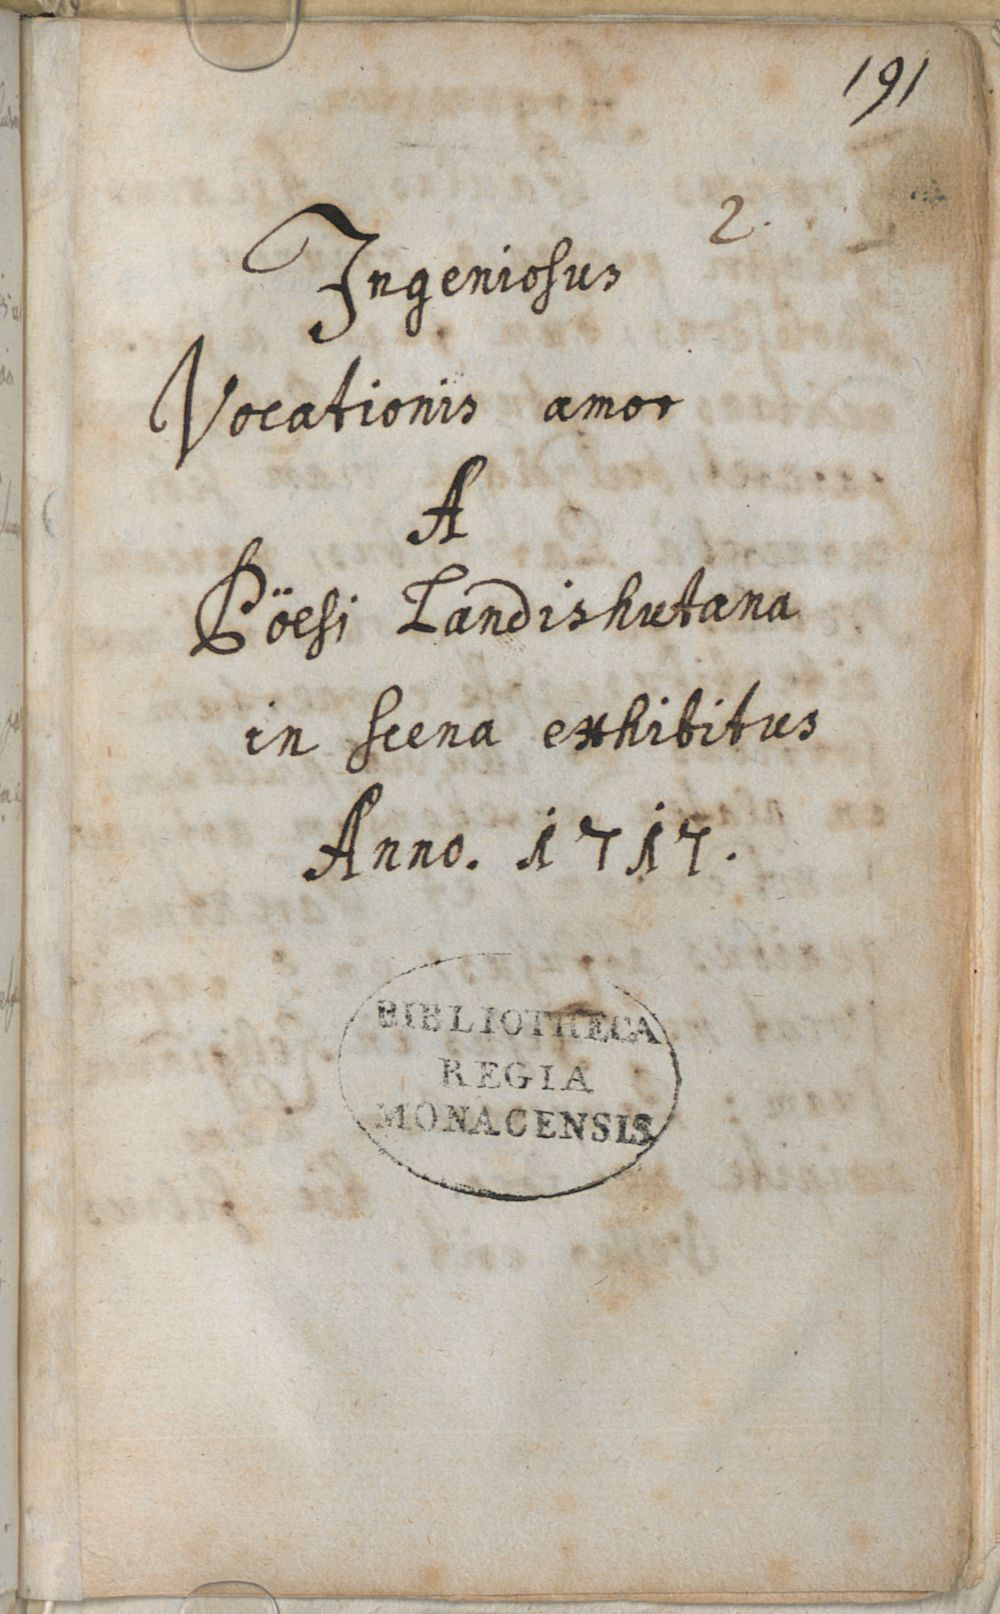 191
2.
Ingeniosus
Vocationis amor
A
Pöesi Landishutana
in scena exhibitus
Anno. 1717.
BIBLIOTHECA
REGIA
MONACENSIS